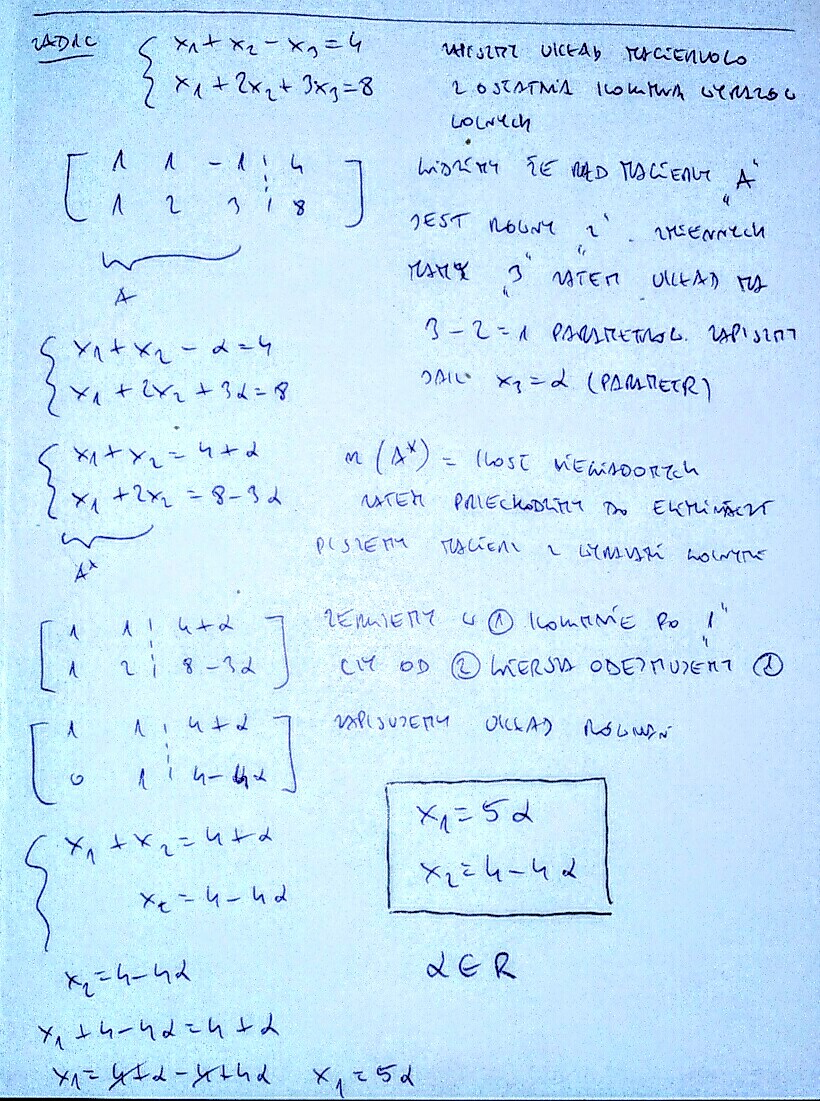 ZAD1C
{ x₁ + x₂ - x₃ = 4
x₁ + 2x₂ + 3x₃ = 8
ZAPISZMY UKŁAD MACIERZOWO
Z OSTATNIĄ KOLUMNĄ WYRAZÓW
WOLNYCH
[ 1 1 -1 ¦ 4
1 2 3 ¦ 8 ]
A
WIDZIMY ŻE RZĄD MACIERZY „A"
JEST RÓWNY „2". ZMIENNYCH
MAMY „3" ZATEM UKŁAD MA
3 - 2 = 1 PARAMETRÓW. ZAPISZMY
x₃ = α (PARAMETR)
{ x₁ + x₂ - α = 4
x₁ + 2x₂ + 3α = 8
{ x₁ + x₂ = 4 + α
x₁ + 2x₂ = 8 - 3α
A*
(A*) = ILOŚĆ NIEWIADOMYCH
ZATEM PRZECHODZIMY DO ELIMINACJI
PISZEMY MACIERZ Z WYRAZAMI WOLNYMI
[ 1 1 ¦ 4 + α
1 2 ¦ 8 - 3α ]
ZERUJEMY W ① KOLUMNIE PO „1"
CZY OD ② WIERSZA ODEJMUJEMY ①
[ 1 1 ¦ 4 + α
0 1 ¦ 4 - 4α ]
ZAPISUJEMY UKŁAD RÓWNAŃ
{ x₁ + x₂ = 4 + α
x₂ = 4 - 4α
x₁ = 5α
x₂ = 4 - 4α
α ∈ R
x₂ = 4 - 4α
x₁ + 4 - 4α = 4 + α
x₁ = 4 + α - 4 + 4α x₁ = 5α